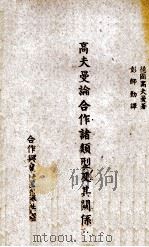 德國高夫曼著
彭師勤譯
高夫曼論合作諸類型及其關係
合作與